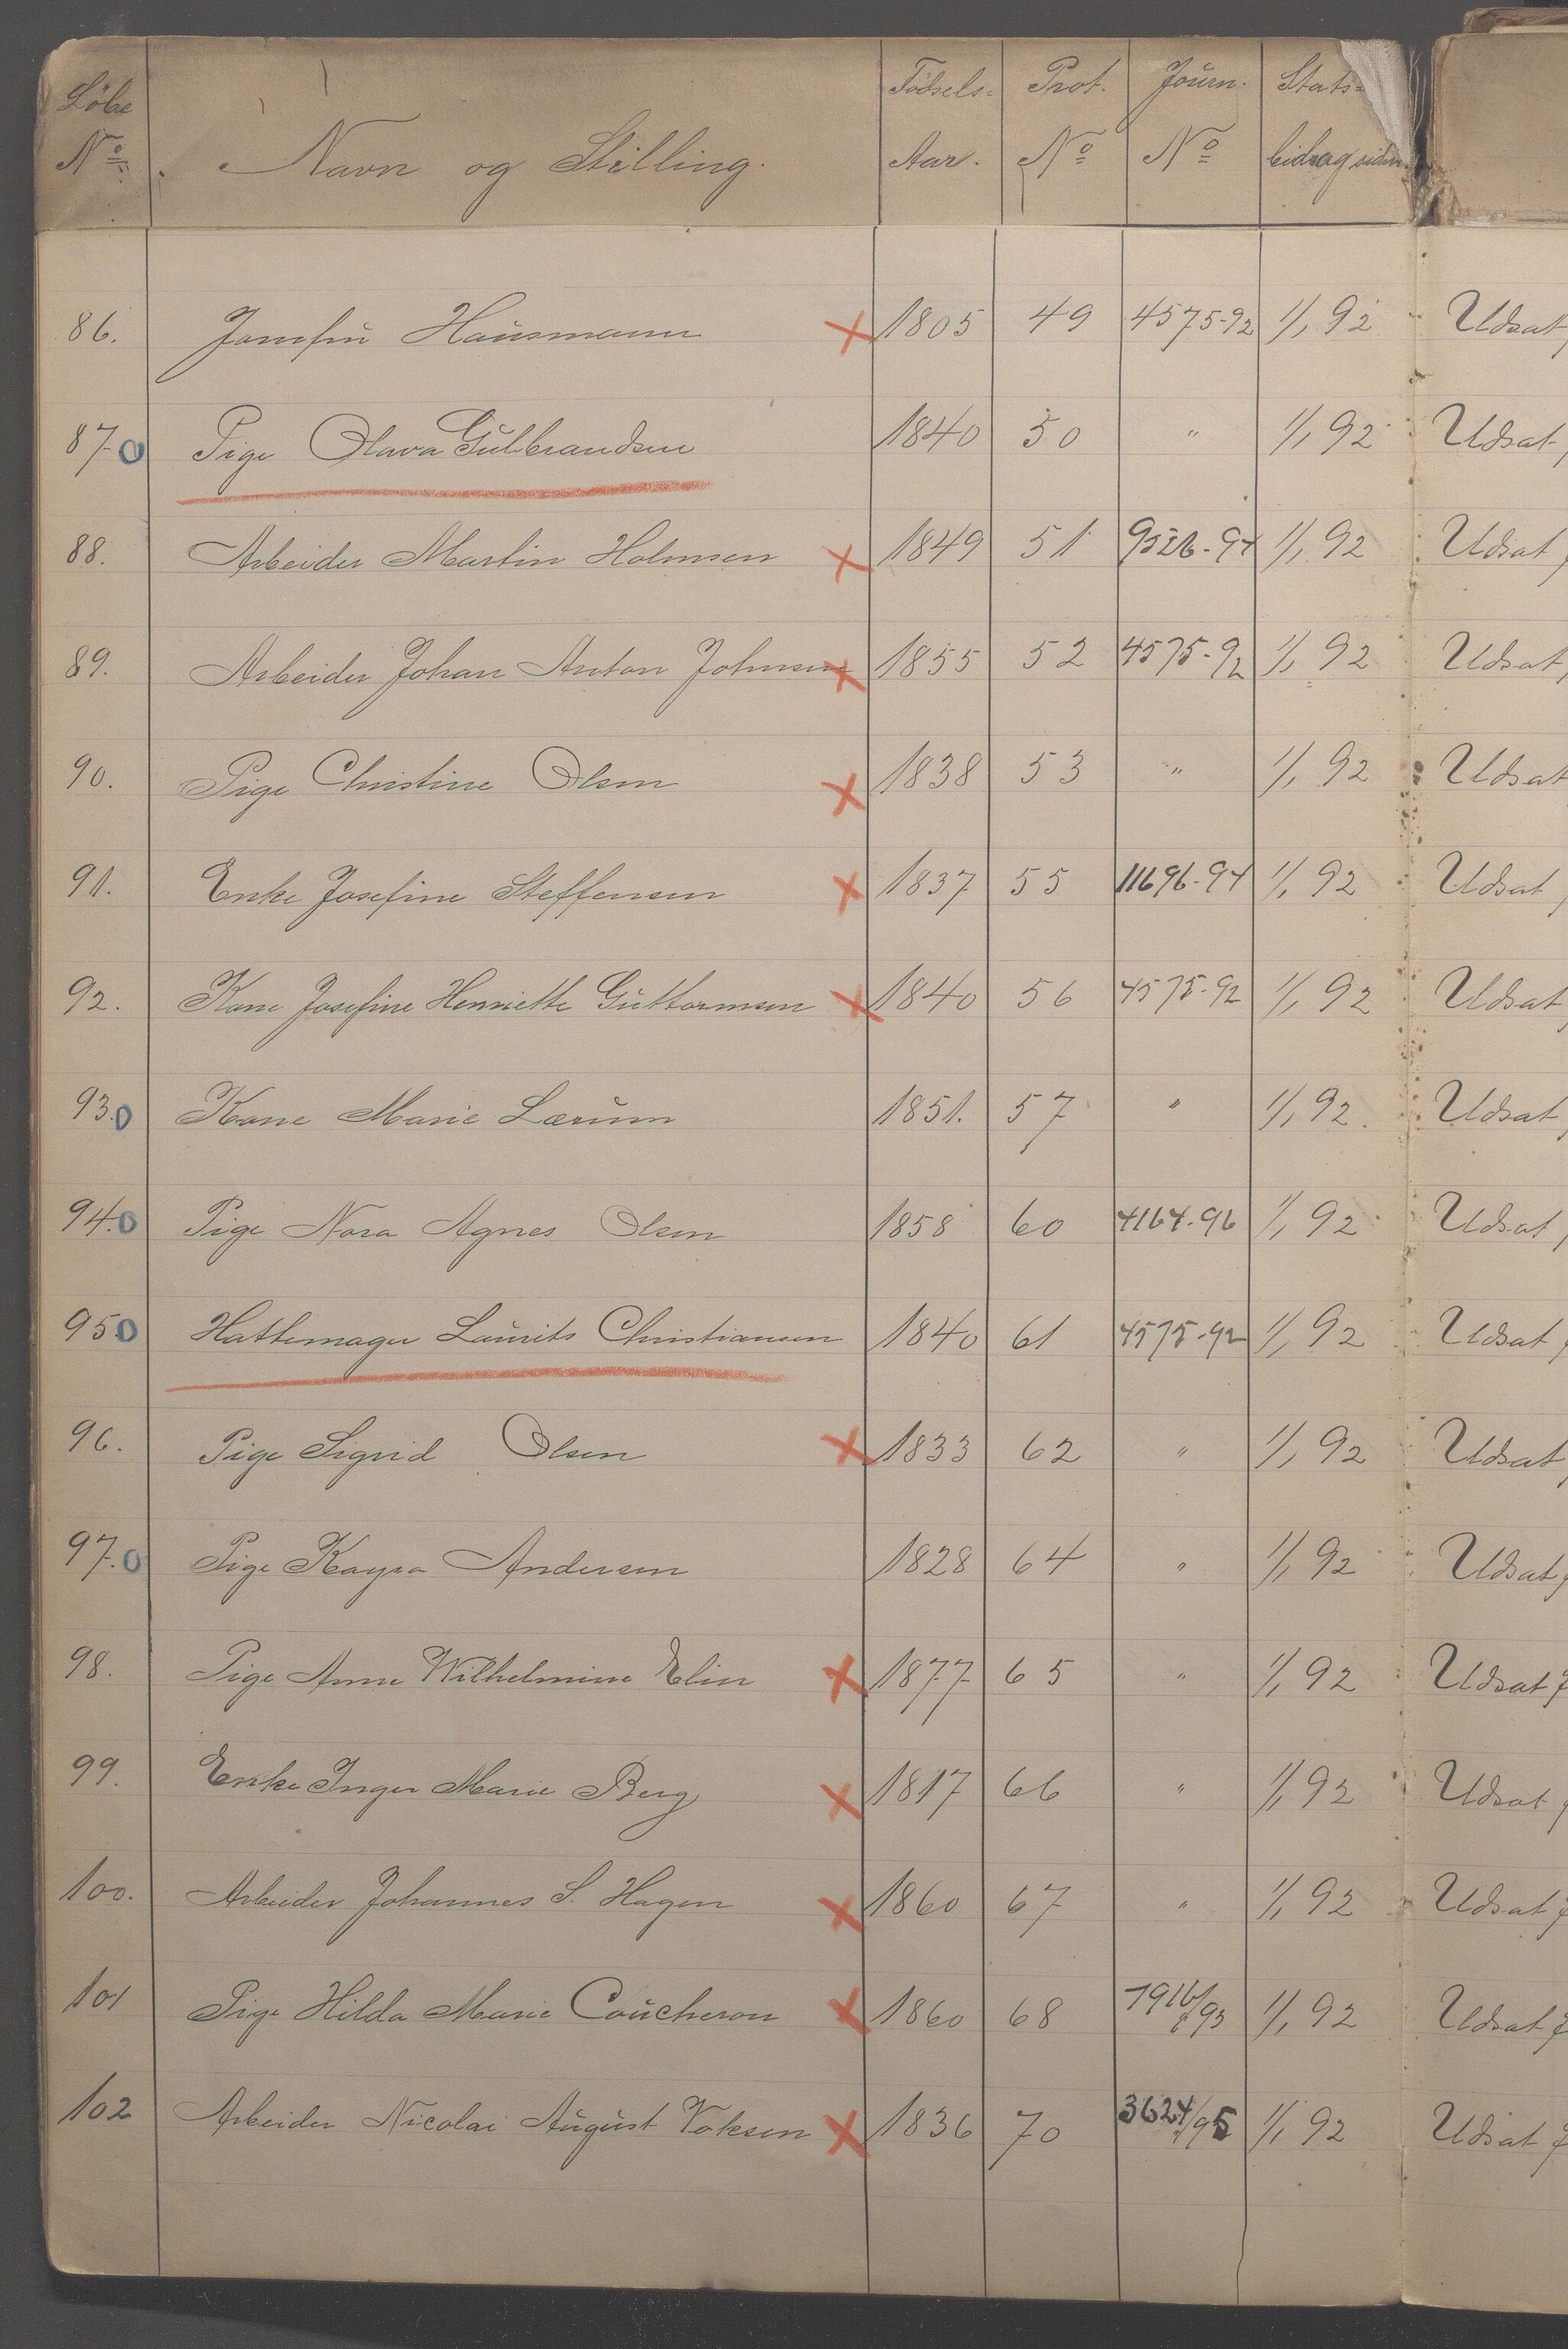 Löbe Fødsels= Prot. Journ. Stats=
No. Navn og Stilling. Aar. No No bidrag siden
86. Jomfru Hausmann 1805 49 4575-92 1/1 92 Udsat
87. 0 Pige Olava Gulbrandsen 1840 50 " 1/1 92 Udsat
88. Arbeider Martin Holmsen 1849 51 9526-94 1/1 92 Udsat
89. Arbeider Johan Anton Johnsen 1855 52 4575-92 1/1 92 Udsat
90. Pige Christine Olsen 1838 53 " 1/1 92 Udsat
91. Enke Josefine Steffensen 1837 55 11696-94 1/1 92 Udsat
92. Kone Josefine Henriette Guttormsen 1840 56 4575-92 1/1 92 Udsat
93. 0 Kone Marie Lærum 1851. 57 " 1/1 92. Udsat
94. 0 Pige Nora Agnes Olsen 1858 60 4164-96 1/1 92 Udsat
95 0 Hattemager Laurits Christiansen 1840 61 4575-92 1/1 92 Udsat
96. Pige Sigrid Olsen 1833 62 " 1/1 92 Udsat
97. 0 Pige Kaysa Andersen 1828 64 " 1/1 92 Udsat
98. Pige Anne Wilhelmine Elin 1877 65 " 1/1 92 Udsat
99. Enke Inger Marie Berg 1817 66 " 1/1 92 Udsat
100. Arbeider Johannes S. Hagen 1860 67 " 1/1 92 Udsat
101 Pige Hilda Marie Coucheron 1860 68 1/1 92 Udsat
102 Arbeider Nicolai August Voksen 1836 70 3624/95 1/1 92 Udsat